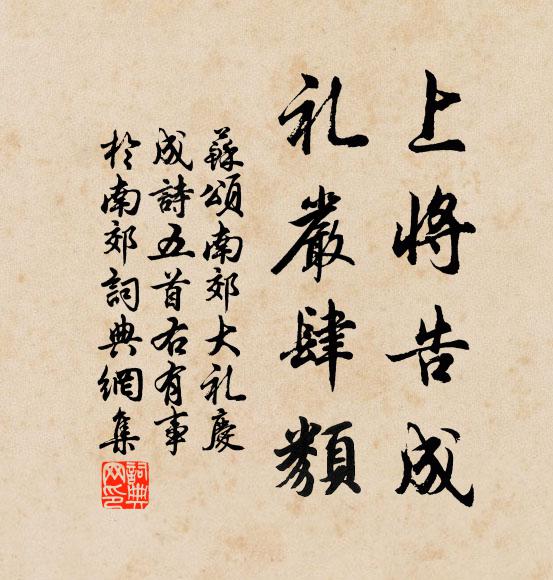 上将告成
礼嚴肆類
蘇頌南郊大礼慶
成詩五首右有事
於南郊詞典網集
詞典
网印